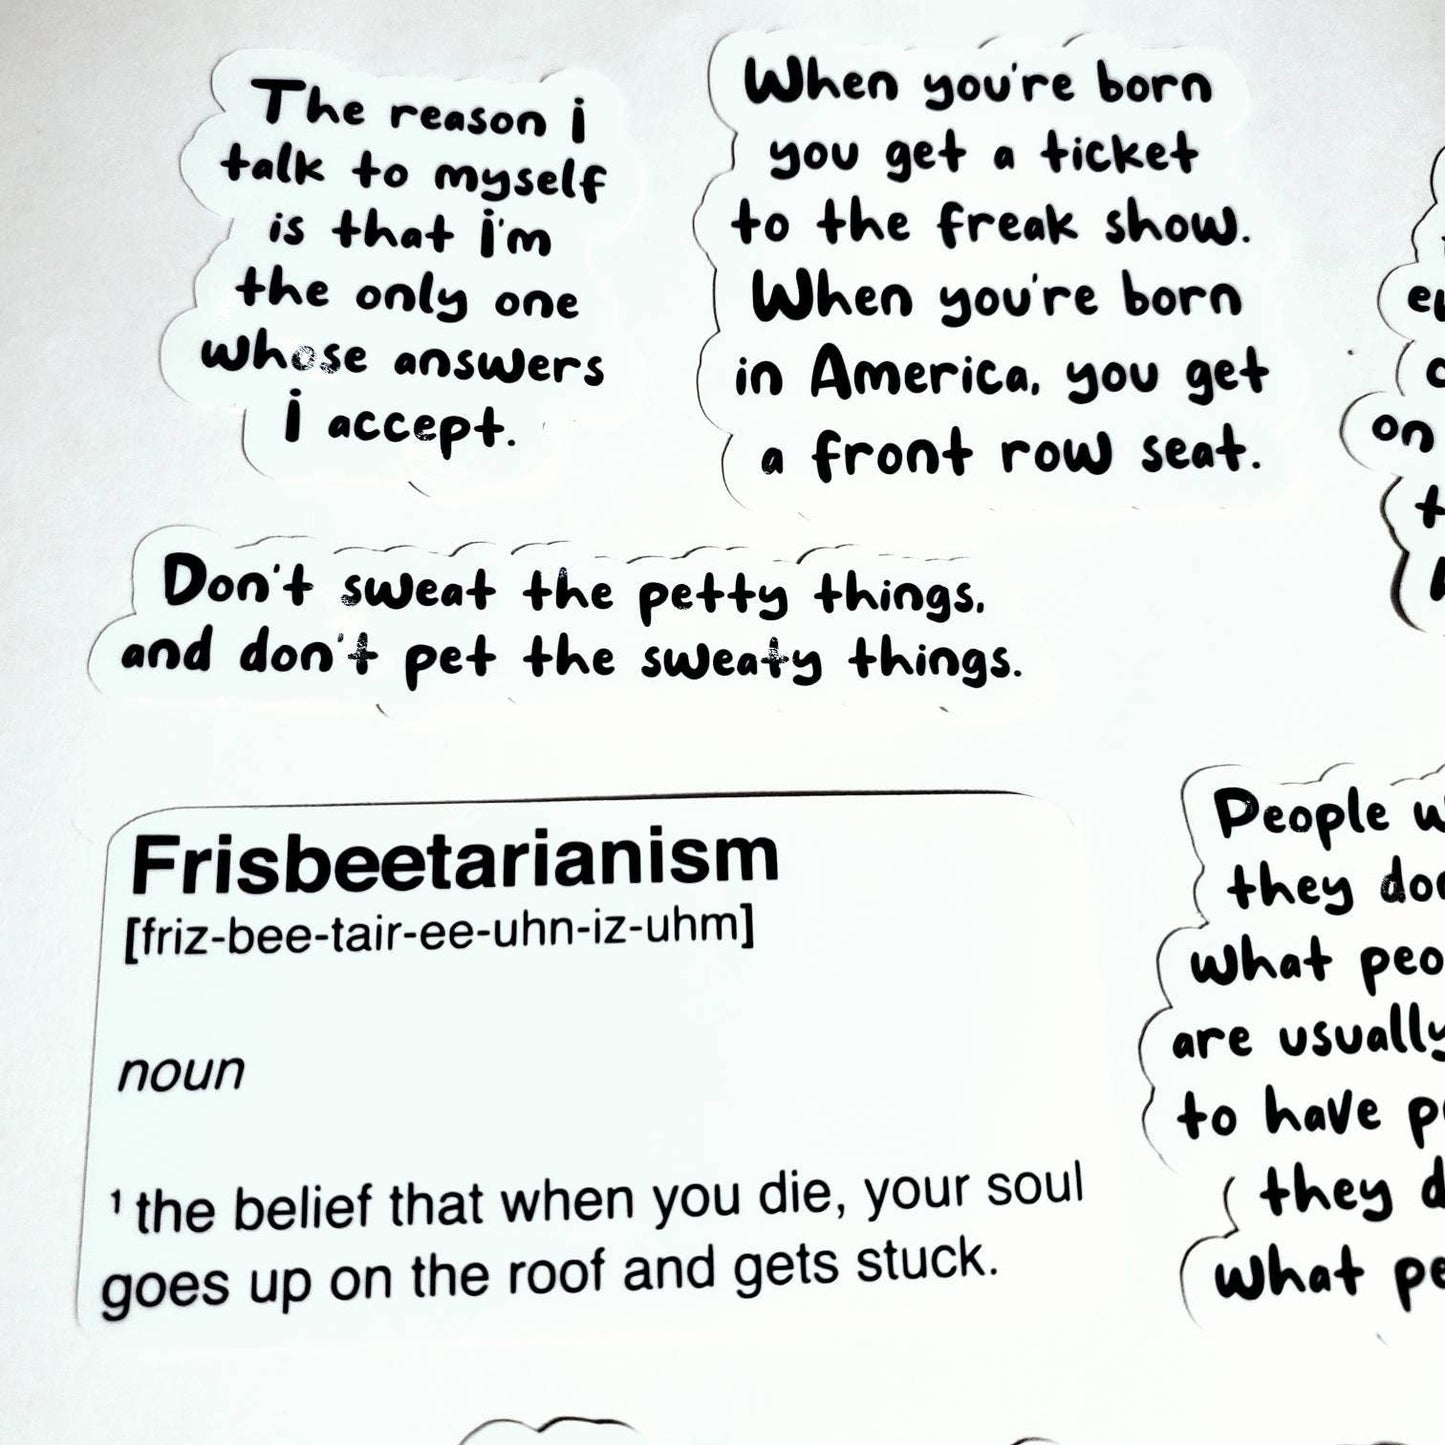 The reason i
talk to myself
is that i'm
the only one
whose answers
i accept.
When you're born
you get a ticket
to the freak show.
When you're born
in America, you get
a front row seat.
on
Don't sweat the petty things,
and don't pet the sweaty things.
Frisbeetarianism
[friz-bee-tair-ee-uhn-iz-uhm]
noun
¹ the belief that when you die, your soul
goes up on the roof and gets stuck.
People
they
what
are usually
to have
they
what